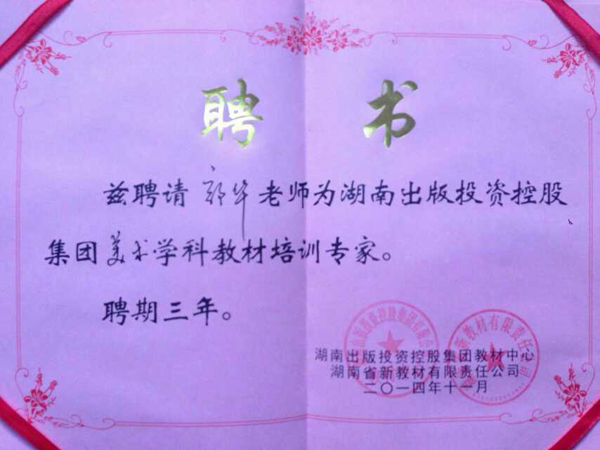 聘书
兹聘请郭华老师为湖南出版投资控股
集团美术学科教材培训专家。
聘期三年。
湖南出版投资控股集团教材中心
湖南省新教材有限责任公司
二〇一四年十一月